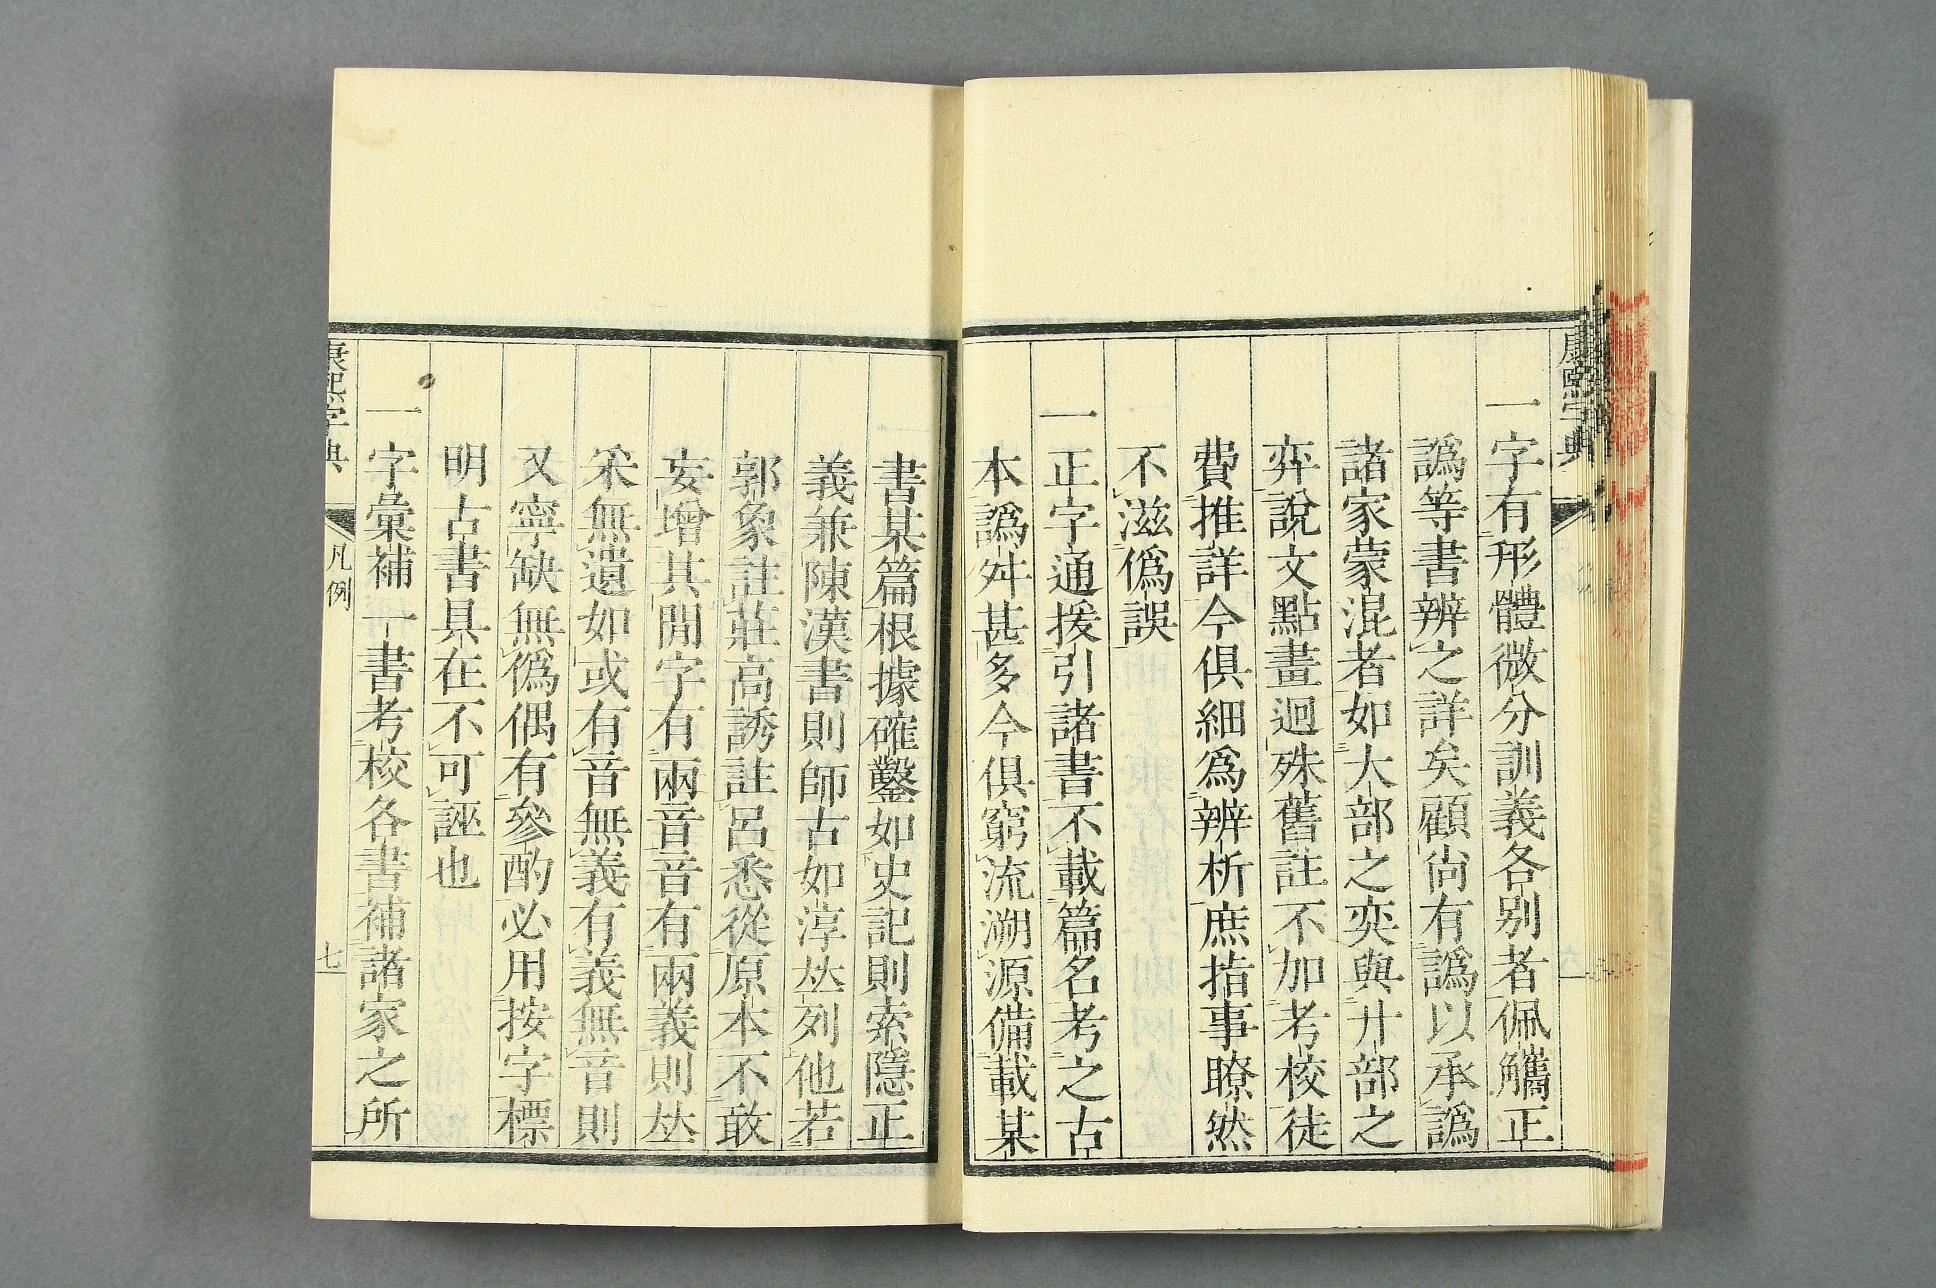 康熙字典
一字有形體微分訓義各別者佩觿正
譌等書辨之詳矣顧尚有譌以承譌
諸家蒙混者如大部之奕與廾部之
弈說文點畫迥殊舊註不加考校徒
費推詳今俱細爲辨析庶指事瞭然
不滋僞誤
一正字通援引諸書不載篇名考之古
本譌舛甚多今俱窮流溯源備載某
書某篇根據確鑿如史記則索隱正
義兼陳漢書則師古如淳𠀤列他若
郭象註莊高誘註呂悉從原本不敢
妄增其閒字有兩音音有兩義則𠀤
采無遺如或有音無義有義無音則
又寧缺無僞偶有參酌必用按字標
明古書具在不可誣也
一字彙補一書考校各書補諸家之所
康熙字典
凡例
七